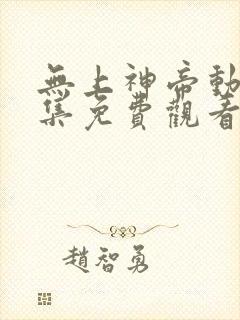 無上神帝動
集免費觀看
趙智勇